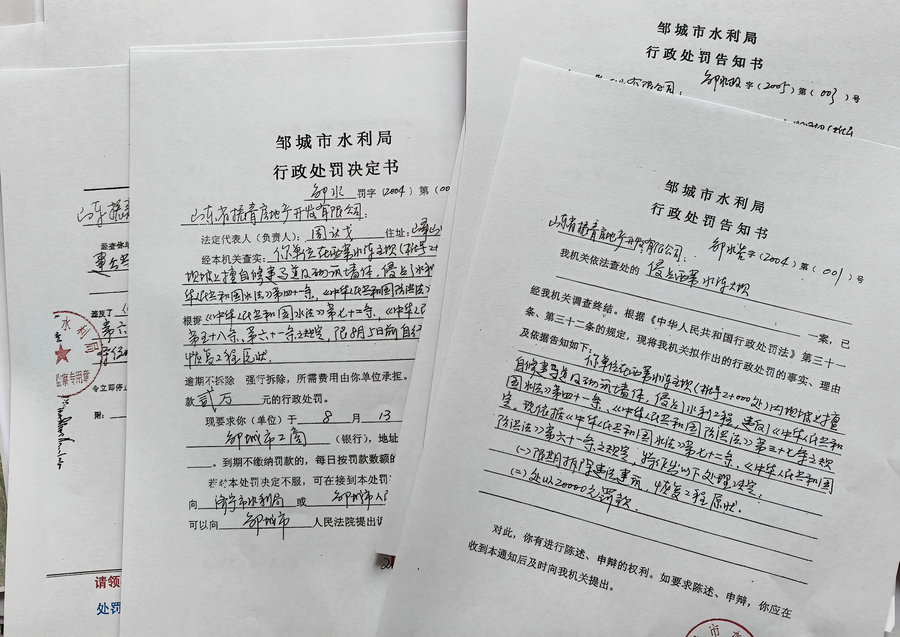 邹城市水利局
行政处罚告知书
字(2005)第(003)号
邹城市水利局
行政处罚决定书
邹水 罚字(2004)第(00
山东省 房地产开发有限公司:
法定代表人(负责人): 周 住址:
经本机关查实: 你单位在西苇水库大坝(桩号2+
坝坡上擅自修建 及砌筑墙体,侵占水利
华人民共和国水法》第四十一条、《中华人民共和国防洪法》
根据《中华人民共和国水法》第七十二条、《中华人民
第五十八条、第六十一条之规定,限8月5日前自行
恢复工程原状
逾期不拆除 强行拆除,所需费用由你单位承担。
款 贰万 元的行政处罚。
现要求你(单位)于 8 月 13
邹城市工商 (银行),地址
。到期不缴纳罚款的,每日按罚款数额的
若对本处罚决定不服,可在接到本处罚
向 济宁市水利局 或 邹城市人
可以向 邹城市 人民法院提出
邹城市水利局
行政处罚告知书
山东省 房地产开发有限公司: 邹水告字(2004)第(001)号
我机关依法查处的 侵占西苇水库大坝
一案,已
经我机关调查终结。根据《中华人民共和国行政处罚法》第三十一
条、第三十二条的规定,现将我机关拟作出的行政处罚的事实、理由
及依据告知如下:
你单位在西苇水库大坝(桩号2+000处)内坝坡上擅
自修建 及砌筑墙体,侵占水利工程,违反了《中华人民共和
国水法》第四十一条、《中华人民共和国防洪法》第三十七条之规
定,现依据《中华人民共和国水法》第七十二条、《中华人民共和国
防洪法》第六十一条之规定,给予以下处理决定:
(一)限期拆除违法事实,恢复工程原状.
(二)处以20000元罚款.
对此,你有进行陈述、申辩的权利。如要求陈述、申辩,你应在
收到本通知后及时向我机关提出。
山东
经查你单
违反了
第六
令立即停止
附:
水利局
监察专用章
请领
处罚